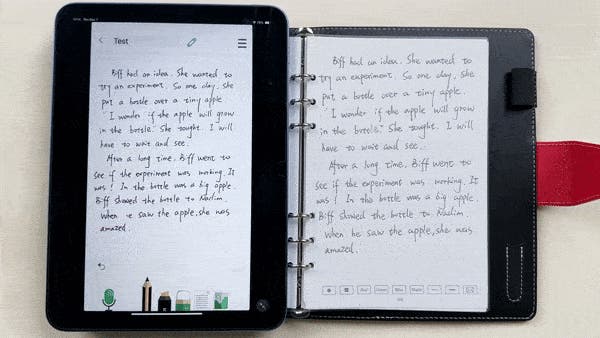 Test
Biff had an idea. She wanted to
try an experiment. So one day, she
put a bottle over a tiny apple
"I wonder if the apple will grow
in the bottle." She tought. I will
have to wait and see.
After a long time. Biff went to
see if the experiment was working. It
was! In the bottle was a big apple.
Biff showed the bottle to Nadim.
When he saw the apple, she was
amazed.
Biff had an idea. She wanted to
try an experiment. So one day, she
put a bottle over a tiny apple
"I wonder if the apple will grow
in the bottle." She tought. I will
have to wait and see.
After a long time. Biff went to
see if the experiment was working. It
was! In the bottle was a big apple.
Biff showed the bottle to Nadim.
When he saw the apple, she was
amazed.